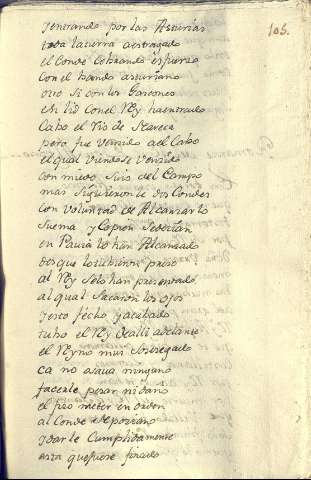 105.
yentrando por las Asturias
toda la tierra aestragado
el Conde Cobrando esfuerzo
con el bando asturiano
otro si con los Gascones
en lid Con el Rey ha entrado
Cabo el Rio de
pero fue vencido al Cabo
el qual viendose vencido
con miedo fuio del Campo
mas siguieronle dos Condes
con voluntad de Alcanzarlo
Suema y Copron Sedecian
en Pravia lo han Alcanzado
des que lo tubieron preso
al Rey Selo han presentado
al qual Sacaron los ojos
yesto fecho y acabado
tubo el Rey de alli adelante
el Reyno muy Sosegado
ca no avia ninguno
facerle pesar ni daño
el fizo meter en orden
al Conde
ydarle Cumplidamente